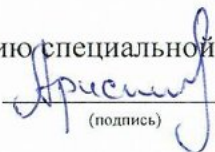 ию специальной
(подпись)